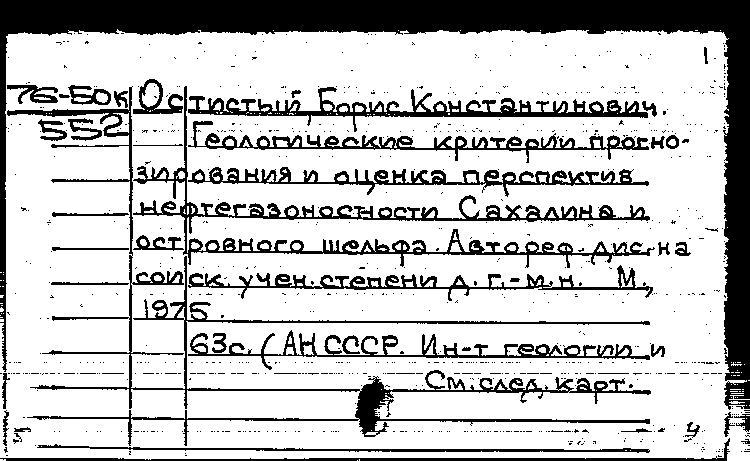 1
76-50к Остистый, Борис Константинович.
552 Геологические критерии прогно-
зирования и оценка перспектив
нефтегазоносности Сахалина и
островного шельфа. Автореф. дис. на
соиск. учен. степени д. г.-м. н. М.,
1975.
63с. (АН СССР. Ин-т геологии и
См. след. карт.
у